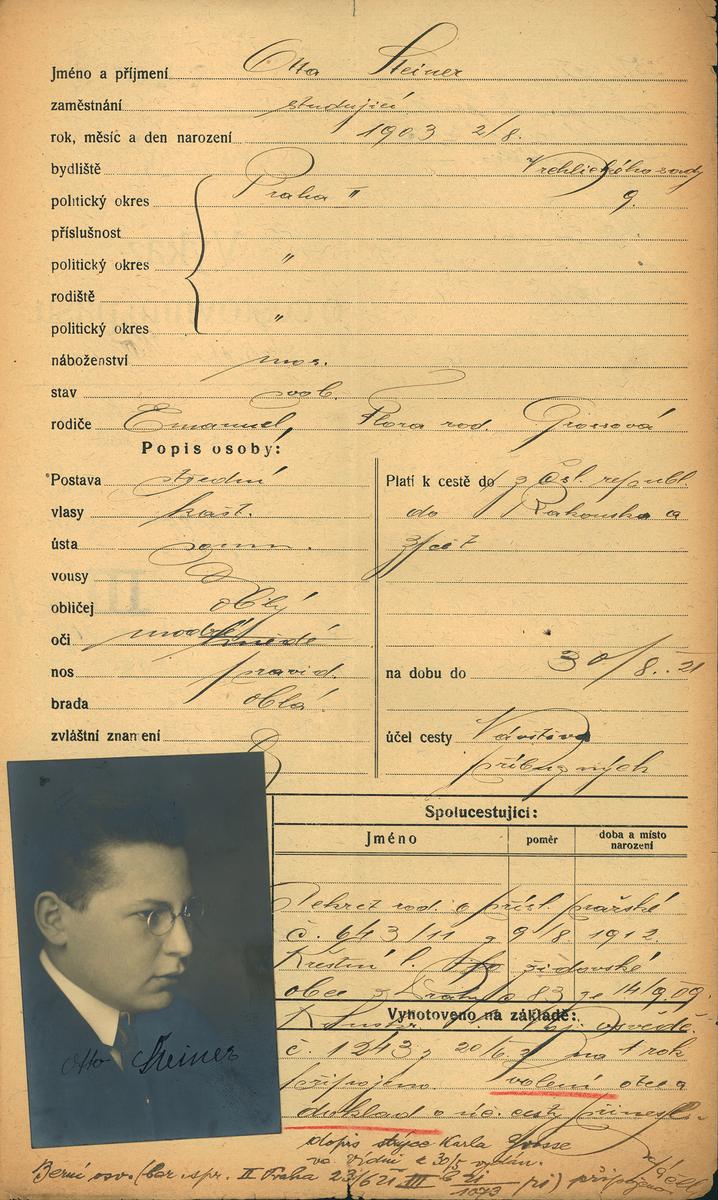 Jméno a příjmení Otto Steiner
zaměstnání studující
rok, měsíc a den narození 1903 2/8.
bydliště Vrchlického sady
politický okres Praha II 9.
příslušnost
politický okres "
rodiště
politický okres "
náboženství mos.
stav svob.
rodiče Emanuel, Flora rod. Grossová
Popis osoby:
Postava střední
vlasy kašt.
ústa soum.
vousy
obličej oblý
oči modré hnědé
nos pravid.
brada oblá
zvláštní znamení
Platí k cestě do z Čsl. republ.
do Rakouska a
zpět
na dobu do 30/8. 21
účel cesty Návštěva
příbuzných
Spolucestující:
Jméno
poměr
doba a místo
narození
Dekret rod. o přísl. pražské
č. 643/11 z 9/8 1912.
Křestní l. židovské
obce z Prahy 83 ze 14/9.09.
Vyhotoveno na základě:
osvědč.
č. 1243 z 20/6 na 1 rok
připojeno. svolení otce a
doklad o úč. cesty přinesl.
dopis strýce Karla Grosse
ve Vídni z 30/5 vydán.
Berní osv. (ber. spr. II Praha 23/6 21 III 1073
Otto Steiner